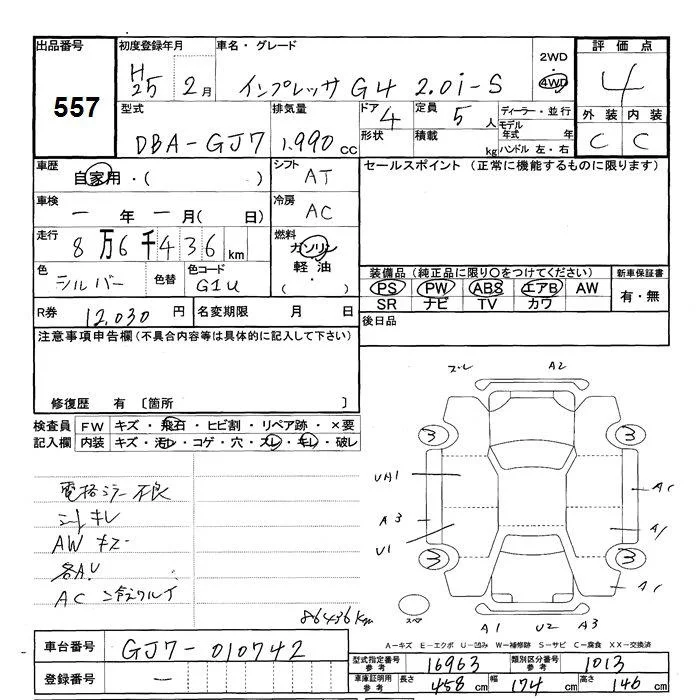 出品番号 初度登録年月 車名・グレード 評価点
557
H25 2月 インプレッサ G4 2.0i-S 2WD 4WD 4
型式 排気量 ドア 4 定員 5人 ディーラー・並行 外装 内装
DBA-GJ7 1,990cc 形状 積載 kg モデル年式 年 C C
ハンドル 左・右
車歴 自家用・( ) シフト AT セールスポイント (正常に機能するものに限ります)
車検 一年一月( 日) 冷房 AC
走行 8万6千436km 燃料 ガソリン 軽油・( )
色 シルバー 色替 色コード G1U
装備品(純正品に限り○をつけてください) 新車保証書
PS PW ABS エアB AW 有・無
SR ナビ TV カワ
R券 12,030円 名変期限 月 日 後日品
注意事項申告欄(不具合内容等は具体的に記入して下さい)
修復歴 有 〔箇所 〕
検査員 FW キズ・飛石・ヒビ割・リペア跡・×要
記入欄 内装 キズ・汚レ・コゲ・穴・スレ・キレ・破レ
電格ミラー不良
シートキレ
AW キズ
各AU
86436km
ズレ A2
3 3
UA1 Ac
A3 A1
U1
3 3
Ac
スペア
A1 U2 A3
A-キズ E-エクボ U-凹み W-補修跡 S-サビ C-腐食 XX-交換済
車台番号 GJ7-010742
登録番号 一
型式指定番号 参考 16963 類別区分番号 参考 1013
車庫証明用 参考 長さ 458cm 幅 174cm 高さ 146cm